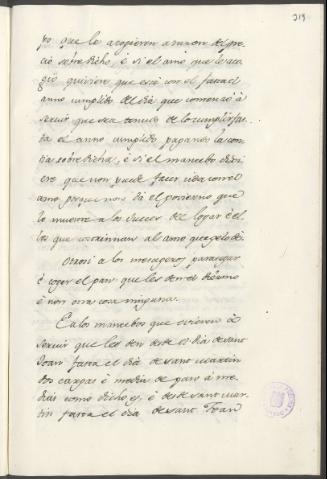 319
po que lo acogieren a razon del pre-
cio sobredicho, è si el amo que lo aco-
gió quisiere que esté con el fasta el
anno cumplido del dia que comenzó à
servir que sea tenudo de lo cumplir fas-
ta el anno cumplido pagando la con-
tia sobredicha, è si el mancebo dixi-
ere que non puede facer vida con el
amo porque nol dá el govierno que
lo muestre a los Jueces del logar è el-
los que costrinnan al amo que gelo dé.
Otrosi a los mesegeros para segar
è coger el pan que les den el diezmo
è non otra cosa ninguna.
E a los mancebos que ovieren à
servir que les den desde el dia de sant
Joan fasta el dia de sant martin
dos cargas è media de pan à me-
dias como dicho es, è desde sant mar-
tin fasta el dia de sant Joan